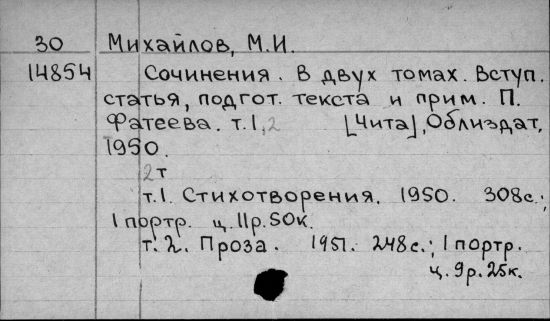 30 Михайлов, М.И.
14854 Сочинения. В двух томах. Вступ.
статья, подгот. текста и прим. П.
Фатеева. т.1,2 [Чита], Облиздат,
1950.
2т
т.1. Стихотворения. 1950. 308с.;
1 портр. ц. 11р.50к.
т. 2. Проза. 1951. 248с.; 1 портр.
ц. 9р. 25к.